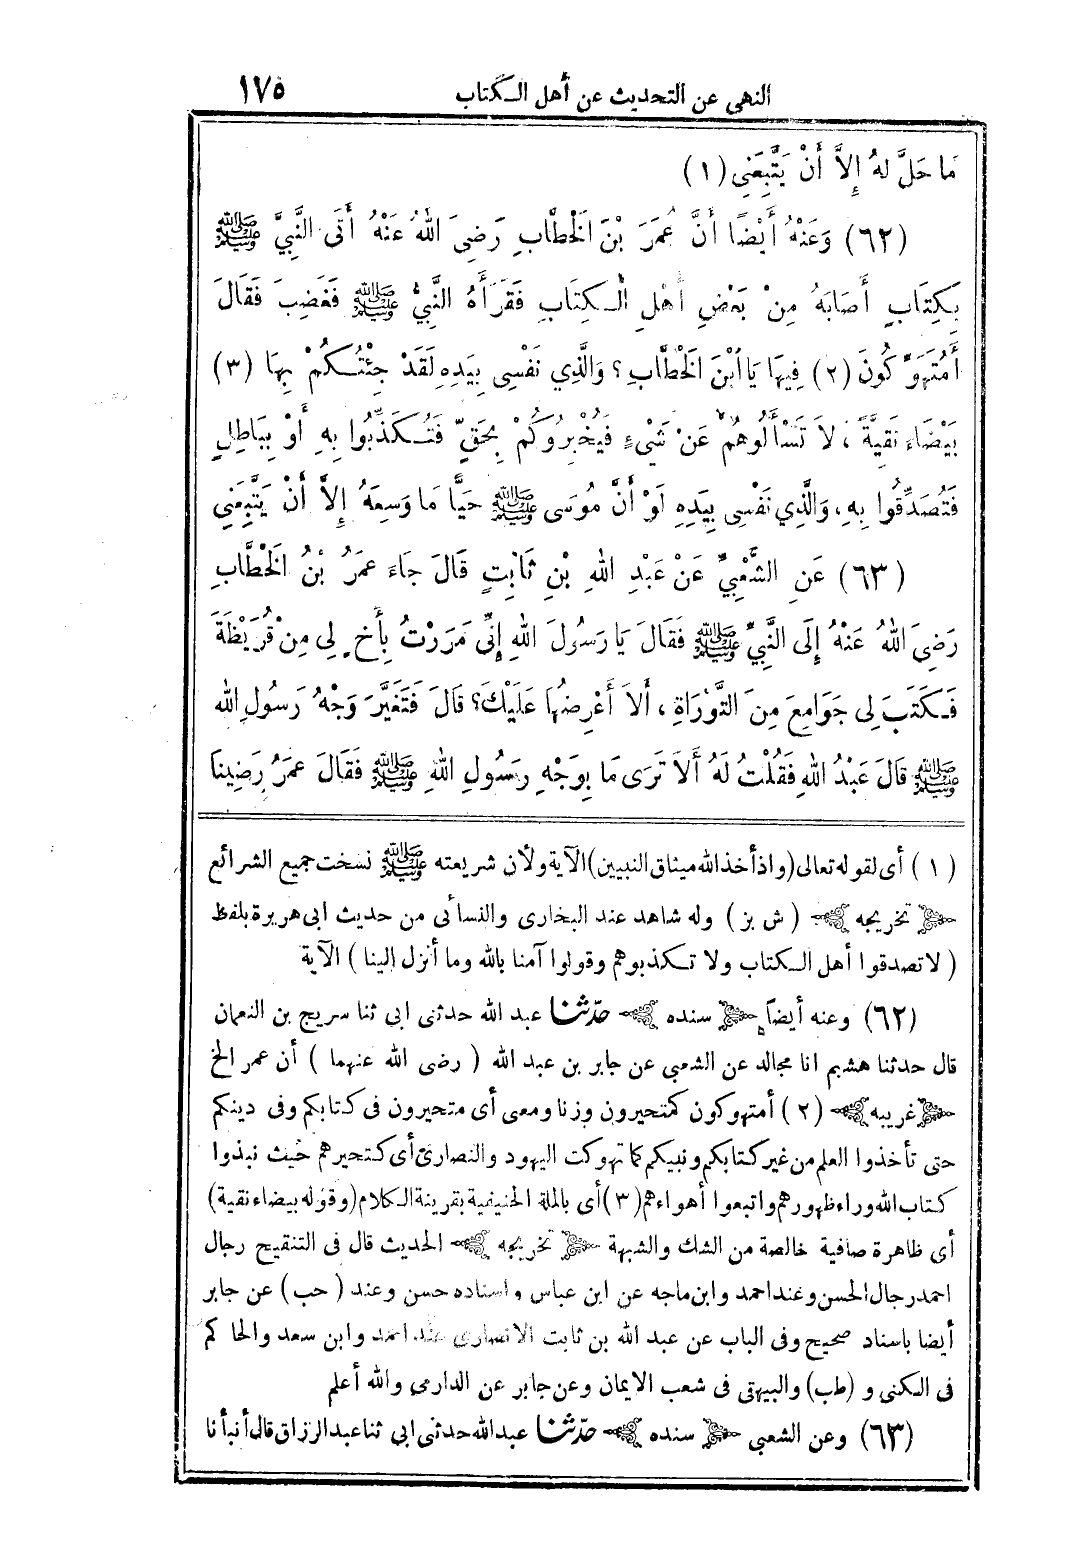 النهى عن التحديث عن أهل الكتاب ١٧٥
مَا حَلَّ لَهُ إِلاَّ أَنْ يَتَّبِعَنِي (١)
(٦٢) وَعَنْهُ أَيْضًا أَنَّ عُمَرَ بْنَ الْخَطَّابِ رَضِيَ اللهُ عَنْهُ أَتَى النَّبِيَّ ﷺ
بِكِتَابٍ أَصَابَهُ مِنْ بَعْضِ أَهْلِ الْكِتَابِ فَقَرَأَهُ النَّبِيُّ ﷺ فَغَضِبَ فَقَالَ
أَمُتَهَوِّكُونَ (٢) فِيهَا يَا ابْنَ الْخَطَّابِ؟ وَالَّذِي نَفْسِي بِيَدِهِ لَقَدْ جِئْتُكُمْ بِهَا (٣)
بَيْضَاءَ نَقِيَّةً ، لاَ تَسْأَلُوهُمْ عَنْ شَيْءٍ فَيُخْبِرُوكُمْ بِحَقٍّ فَتُكَذِّبُوا بِهِ أَوْ بِبَاطِلٍ
فَتُصَدِّقُوا بِهِ ، وَالَّذِي نَفْسِي بِيَدِهِ لَوْ أَنَّ مُوسَى ﷺ حَيًّا مَا وَسِعَهُ إِلاَّ أَنْ يَتَّبِعَنِي
(٦٣) عَنِ الشَّعْبِيِّ عَنْ عَبْدِ اللهِ بْنِ ثَابِتٍ قَالَ جَاءَ عُمَرُ بْنُ الْخَطَّابِ
رَضِيَ اللهُ عَنْهُ إِلَى النَّبِيِّ ﷺ فَقَالَ يَا رَسُولَ اللهِ إِنِّي مَرَرْتُ بِأَخٍ لِي مِنْ قُرَيْظَةَ
فَكَتَبَ لِي جَوَامِعَ مِنَ التَّوْرَاةِ ، أَلاَ أَعْرِضُهَا عَلَيْكَ؟ قَالَ فَتَغَيَّرَ وَجْهُ رَسُولِ اللهِ
ﷺ قَالَ عَبْدُ اللهِ فَقُلْتُ لَهُ أَلاَ تَرَى مَا بِوَجْهِ رَسُولِ اللهِ ﷺ فَقَالَ عُمَرُ رَضِينَا
(١) أى لقوله تعالى (واذ أخذ الله ميثاق النبيين) الآية ولأن شريعته ﷺ نسخت جميع الشرائع
﴿تخريجه﴾ (ش بز) وله شاهد عند البخارى والنسائى من حديث ابى هريرة بلفظ
(لا تصدقوا أهل الكتاب ولا تكذبوهم وقولوا آمنا بالله وما أنزل إلينا) الآية
(٦٢) وعنه أيضاً ﴿سنده﴾ حدّثنا عبد الله حدثنى ابى ثنا سريج بن النعمان
قال حدثنا هشيم انا مجالد عن الشعبي عن جابر بن عبد الله (رضى الله عنهما) أن عمر الخ
﴿غريبه﴾ (٢) أمتهوكون كمتحيرون وزنا ومعى أى متحيرون فى كتابكم وفى دينكم
حتى تأخذوا العلم من غير كتابكم ونبيكم كما تهوكت اليهود والنصارى أى كتحيرهم حيث نبذوا
كتاب الله وراء ظهورهم واتبعوا أهواءهم (٣) أى بالملة الحنيفية بقرينة الكلام (وقوله بيضاء نقية)
أى ظاهرة صافية خالصة من الشك والشبهة ﴿تخريجه﴾ الحديث قال فى التنقيح رجال
احمد رجال الحسن وعند احمد وابن ماجه عن ابن عباس واسناده حسن وعند (حب) عن جابر
أيضا باسناد صحيح وفى الباب عن عبد الله بن ثابت الانصارى عند احمد وابن سعد والحاكم
فى الكنى و (طب) والبيهقى فى شعب الايمان وعن جابر عن الدارمي والله أعلم
(٦٣) وعن الشعبي ﴿سنده﴾ حدّثنا عبد الله حدثنى ابى ثنا عبد الرزاق قال أنبأنا